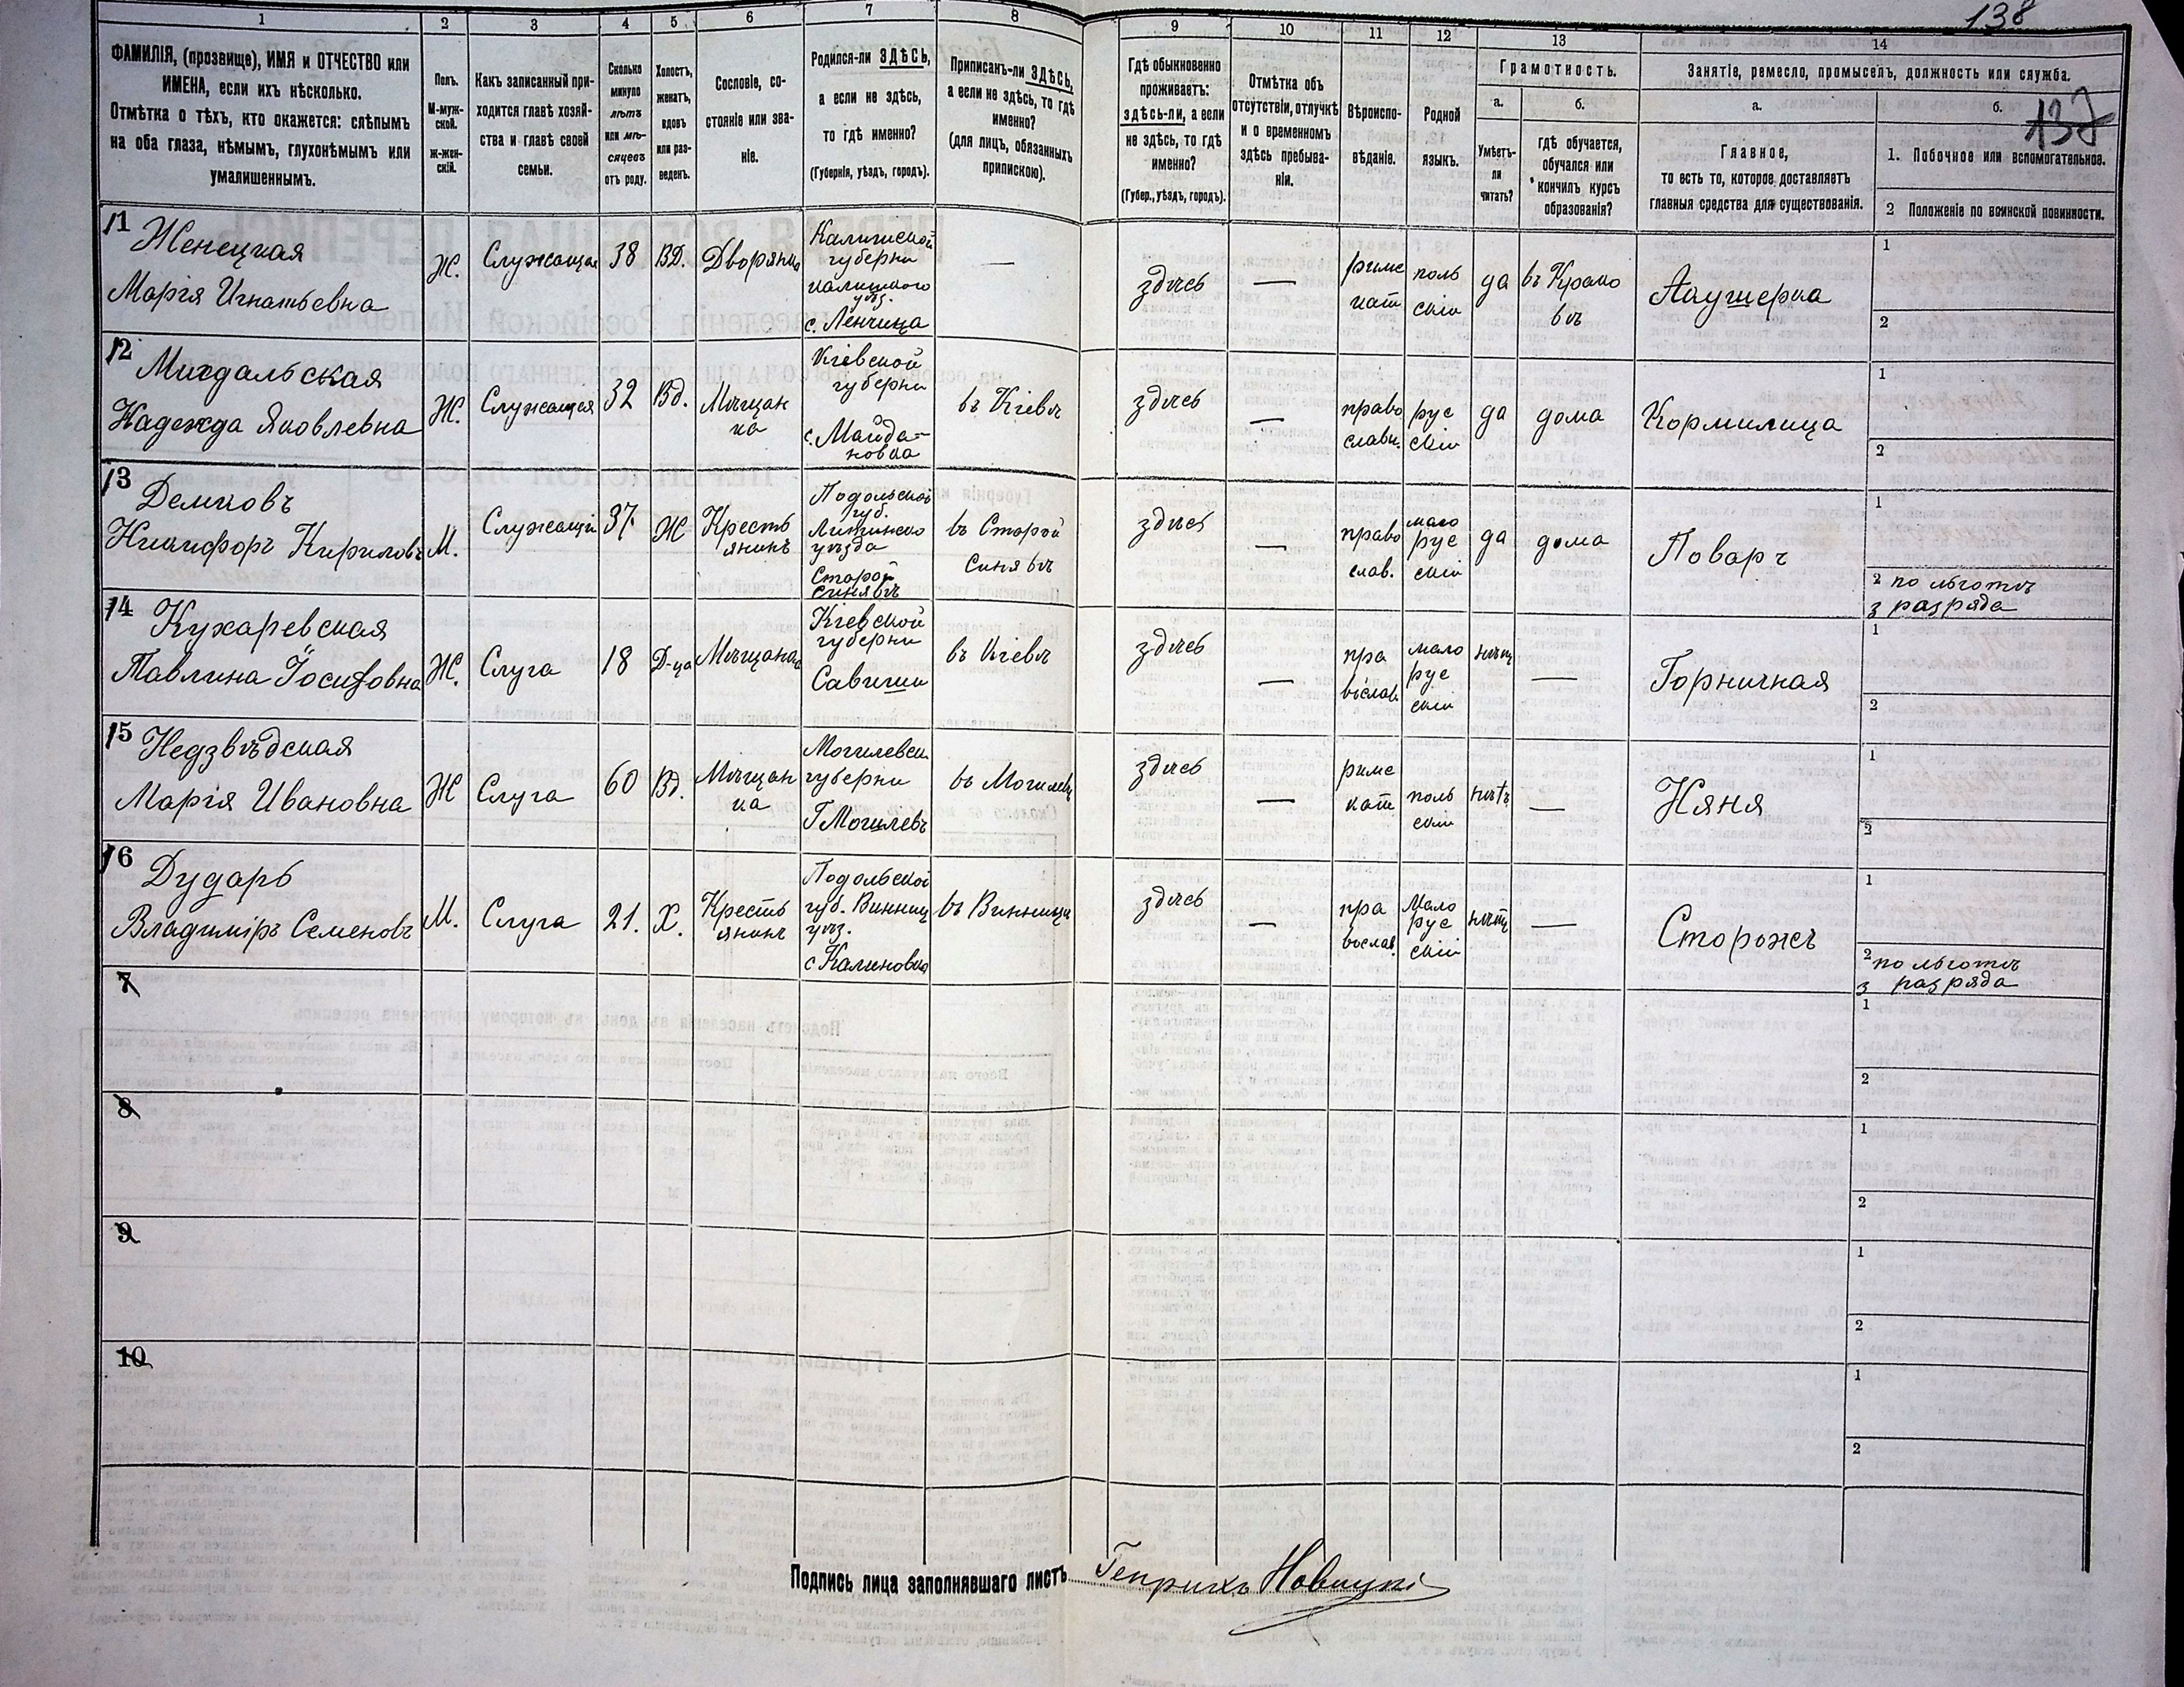 138
137
1
2
3
4
5
6
7
8
9
10
11
12
13
14
ФАМИЛІЯ, (прозвище), ИМЯ и ОТЧЕСТВО или
ИМЕНА, если ихъ нѣсколько.
Отмѣтка о тѣхъ, кто окажется: слѣпымъ
на оба глаза, нѣмымъ, глухонѣмымъ или
умалишеннымъ.
Полъ.
М-муж-
ской.
ж-жен-
скій.
Какъ записанный при-
ходится главѣ хозяй-
ства и главѣ своей
семьи.
Сколько
минуло
лѣтъ
или мѣ-
сяцевъ
отъ роду.
Холостъ,
женатъ,
вдовъ
или раз-
веденъ.
Сословіе, со-
стояніе или зва-
ніе.
Родился-ли ЗДѢСЬ,
а если не здѣсь,
то гдѣ именно?
(Губернія, уѣздъ, городъ).
Приписанъ-ли ЗДѢСЬ,
а если не здѣсь, то гдѣ
именно?
(для лицъ, обязанныхъ
припискою).
Гдѣ обыкновенно
проживаетъ:
здѣсь-ли, а если
не здѣсь, то гдѣ
именно?
(Губер., уѣздъ, городъ).
Отмѣтка объ
отсутствіи, отлучкѣ
и о временномъ
здѣсь пребыва-
ніи.
Вѣроиспо-
вѣданіе.
Родной
языкъ.
Грамотность.
а.
Умѣетъ-
ли
читать?
б.
гдѣ обучается,
обучался или
кончилъ курсъ
образованія?
Занятіе, ремесло, промыселъ, должность или служба.
а.
Главное,
то есть то, которое доставляетъ
главныя средства для существованія.
б.
1. Побочное или вспомогательное.
2 Положеніе по воинской повинности.
11
Женецкая
Марія Игнатьевна
Ж.
Служащая
38
ВД.
Дворянка
Калишской
губерни
калишкого
уѣз.
с. Ленчица
—
здѣсь
—
римс
кат
поль
скій
да
въ Крако
вѣ
Акушерка
1
2
12
Мигдальская
Надежда Яковлевна
Ж.
Служащая
32
Вд.
Мѣщан
ка
Кіевской
губерни
с. Майда-
новка
въ Кіевѣ
здѣсь
—
право
славн.
рус
скій
да
дома
Кормилица
1
2
13
Демковъ
Никифоръ Кириловъ
М.
Служащій
37
Ж
Кресть
янинъ
Подольской
губ.
Литинско
уѣзда
Старой
Синявѣ
въ Старой
Синявѣ
здѣсь
—
право
слав.
мало
рус
скій
да
дома
Поваръ
1
2 по льготѣ
3 разряда
14
Кухаревская
Павлина Іосифовна
Ж.
Слуга
18
Д-ца
Мѣщанка
Кіевской
губерни
Савички
въ Кіевѣ
здѣсь
—
пра
вослав
мало
рус
скій
нѣтъ
—
Горничная
1
2
15
Недзвѣдская
Марія Ивановна
Ж
Слуга
60
Вд.
Мѣщан
ка
Могилевск
губерни
Г Могилевъ
въ Могилевѣ
здѣсь
—
римс
кат
поль
скій
нѣтъ
—
Няня
1
2
16
Дударь
Владиміръ Семеновъ
М.
Слуга
21.
Х.
Кресть
янинъ
Подольской
губ. Винниц
уѣз.
с Калиновка
въ Винницы
здѣсь
—
пра
вослав.
Мало
рус
скій
нѣтъ
—
Сторожъ
1
2 по льготѣ
3 разряда
7
1
2
8
1
2
9
1
2
10
1
2
Подпись лица заполнявшаго листъ Генрихъ Новицкій